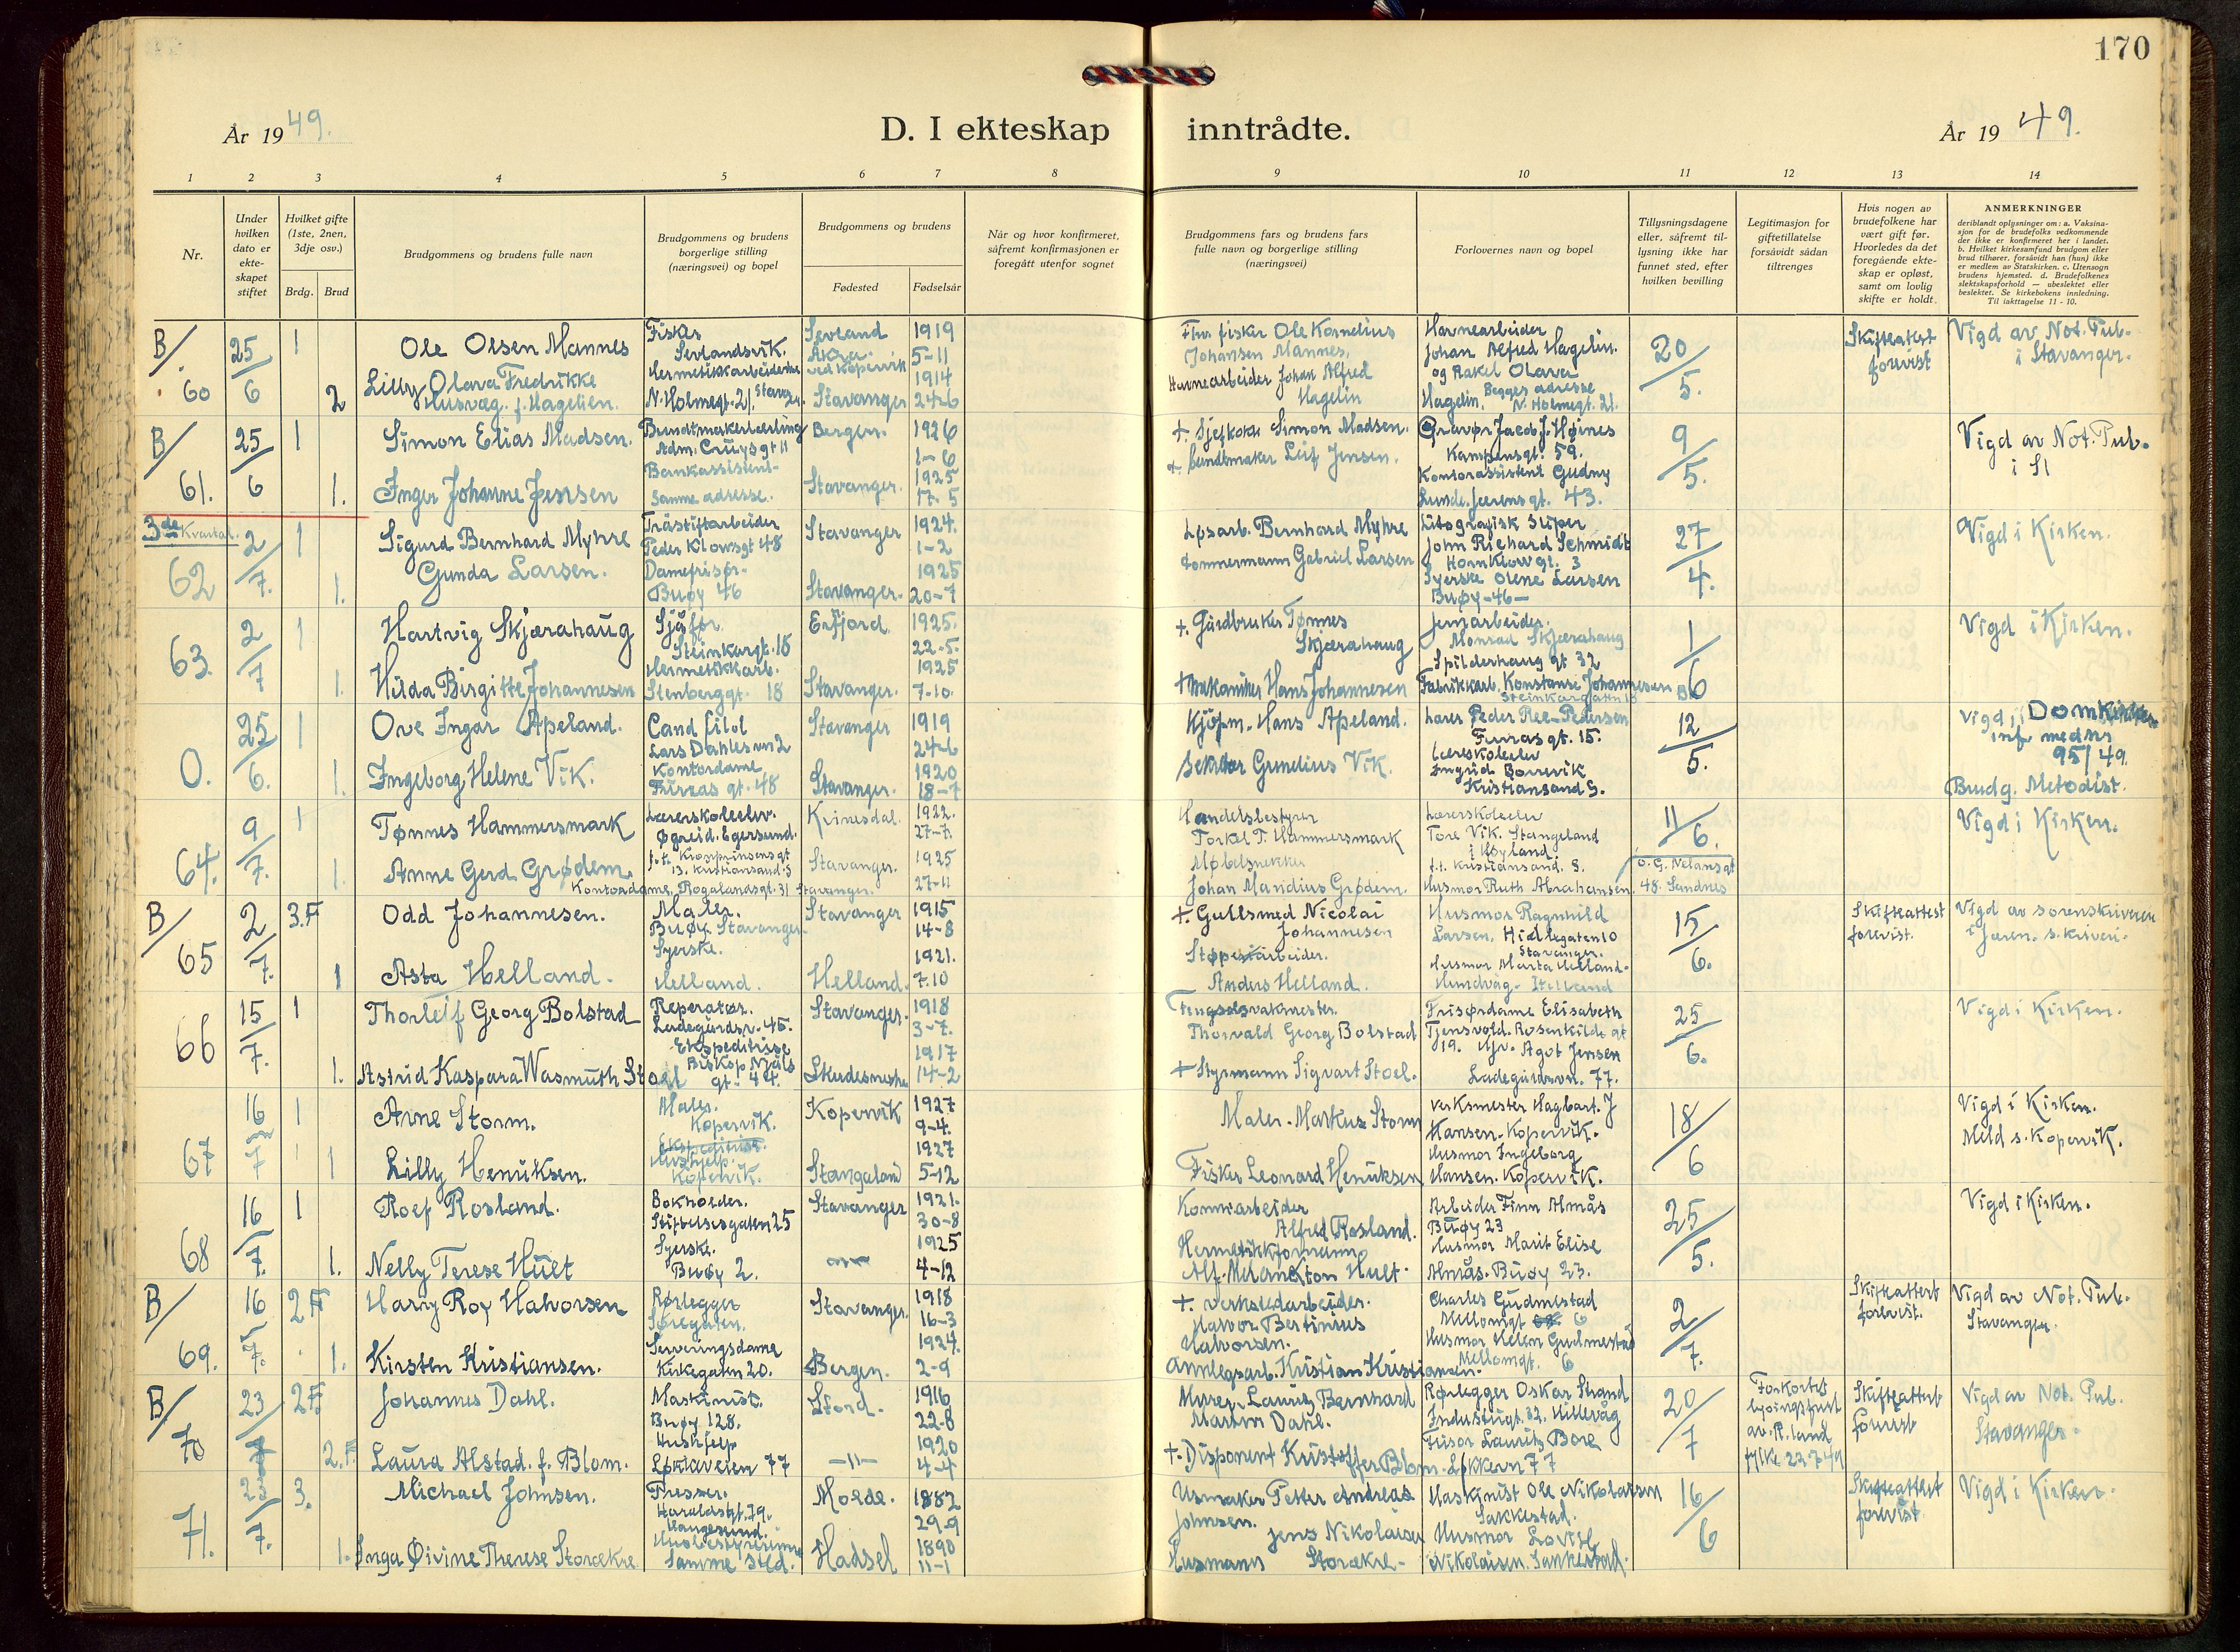 170
År 1949.
D. I ekteskap inntrådte.
År 1949.
1 2 3 4 5 6 7 8 9 10 11 12 13 14
Nr.
Under hvilken dato er ekteskapet stiftet
Hvilket gifte (1ste, 2nen, 3dje osv.)
Brdg. Brud
Brudgommens og brudens fulle navn
Brudgommens og brudens borgerlige stilling (næringsvei) og bopel
Brudgommens og brudens
Fødested Fødselsår
Når og hvor konfirmeret, såfremt konfirmasjonen er foregått utenfor sognet
Brudgommens fars og brudens fars fulle navn og borgerlige stilling (næringsvei)
Forlovernes navn og bopel
Tillysningsdagene eller, såfremt tillysning ikke har funnet sted, efter hvilken bevilling
Legitimasjon for giftetillatelse forsåvidt sådan tiltrenges
Hvis nogen av brudefolkene har vært gift før. Hvorledes da det foregående ekteskap er opløst, samt om lovlig skifte er holdt.
ANMERKNINGER
deriblandt oplysninger om: a. Vaksinasjon for de brudefolks vedkommende der ikke er konfirmeret her i landet. b. Hvilket kirkesamfund brudgom eller brud tilhører, forsåvidt han (hun) ikke er medlem av Statskirken. c. Utensogn brudens hjemsted. d. Brudefolkenes slektskapsforhold — ubeslektet eller beslektet. Se kirkebokens innledning. Til iakttagelse 11 - 10.
B/ 60 25/6 1 Ole Olsen Mannes Fisker Sevlandsvik. Sevland Åkra. ved Kopervik 1919 5-11
2 Lilly Olava Fredrikke Husvæg. f. Hagelien. Hermetikkarbeiderske N. Holmegt. 21. Stavanger 1914 24-6
Fhv. fisker Ole Kornelius Johansen Mannes.
Havnearbeider Johan Alfred Hagelin
Havnearbeider Johan Alfred Hagelin. og Rakel Olava Hagelin. Begges adresse N. Holmegt. 21.
20/5. Skifteattest forevist Vigd av Not. Pub. i Stavanger.
B/ 61. 25/6 1 Simon Elias Madsen. Buntmakerlærling Adm. Cruysgt 11 Bergen. 1926 1-6
1. Inger Johanne Jensen Bankassistent. Samme adresse. Stavanger. 1925 17-5
+. Sjefkokk Simon Madsen.
+ Buntmaker Leif Jensen.
Gravør Jacob J. Høines Kampensgt. 59. Kontorassistent Gudny Lunde. Jærensgt. 43.
9/5. Vigd av Not. Pub. i St
3de Kvartal.
62 2/7. 1 Sigurd Bernhard Myhre Trästiftarbeider Peder Klowsgt 48 Stavanger 1924. 1-2
1. Gunda Larsen. Damefrisør. Buøy 46 Stavanger. 1925 20-7
Løsarb. Bernhard Myhre
Tømmermann Gabriel Larsen
Litografisk Sliper John Richard Schmidt Hornklow gt. 3 Syerske Olene Larsen Buøy -46-
27/4. Vigd i Kirken.
63. 2/7 1 Hartvig Skjærahaug Sjåfør. Steinkargt. 18 Erfjord. 1925. 22-5.
1. Hilda Birgitte Johannesen Hermetikkarb. Stenberggt. 18 Stavanger. 1925 7-10.
+. Gårdbruker Tønnes Skjærahaug
+ Mekaniker Hans Johannesen
Jernarbeider. Monrad Skjærahaug Spilderhaug gt 32 Fabrikkarb. Konstanse Johannesen Steinkargaten 18
1/6 Vigd i Kirken.
0. 25/6. 1 Ove Ingar Apeland. Cand filol Lars Dahles vn 2 Stavanger 1919 24-6
1. Ingeborg Helene Vik. Kontordame Furras gt. 48 Stavanger. 1920 18-7
Kjöpm. Hans Apeland.
Sekretær Gundius Vik.
Lærer Peder Ree-Pedersen Furras gt. 15. Lærerskoleelev Ingrid Borrevik Kristiansand S.
12/5. Vigd i Domkirken inf. med nr 95/49. Brudg. Metodist.
64. 9/7. 1 Tønnes Hammersmark Lærerskoleelev. Øgreid. Egersund. t.t. Kronprinsensgt 13. Kristiansand. S Kvinesdal. 1922. 27-7.
1. Anne Gerd Grødem. Kontordame, Rogalandsgt. 31 Stavanger. Stavanger. 1925 27-11
Handelsbestyrer Torkel T. Hammersmark
Møbelsnekker Johan Mandius Grødem.
Lærerskoleelev Tore Vik. Stangeland i Høyland. t.t. Kristiansand. S. Husmor Ruth Abrahamsen. O. G. Nelansgt 48. Sandnes
11/6. Vigd i Kirken.
B/ 65 2/7. 3.F Odd Johannesen. Maler. Buøy. Stavanger Stavanger 1915 14-8
1 Asta Helland. Syerske. Helland. Helland. 1921. 7-10
+ Gullsmed Nicolai Johannesen
Støperiarbeider. Anders Helland.
Husmor Ragnhild Larsen. Hidlegaten 10 Stavanger. Husmor Marta Helland. Hundvåg - Helland
15/6. Skifteattest forevist. Vigd av sorenskriveren i Jæren. s. kriveri.
66 15/7. 1 Thorleif Georg Bolstad Reperatør. Ladegårdsv. 45. Stavanger. 1918 3-7.
1. Astrid Kaspara Wasmuth Stoel Ekspeditrise Biskop Njåls gt. 44. Skudesneshn 1917 14-2
Fengselsvaktmester. Thorvald Georg Bolstad
+ Styrmann Sigvart Stoel.
Frisørdame Elisabeth Tjensvold. Rosenkilde gt 19. Agot Jensen Ladegårdsvn. 77.
25/6. Vigd i Kirken.
67 16/7 1 Arne Storm. Maler. Kopervik. Kopervik 1927 9-4.
1 Lilly Henriksen. Hushjelp. Kopervik. Stangeland 1927 5-12
Maler. Markus Storm
Fisker Leonard Henriksen
Verksmester Hagbart. J Hansen. Kopervik. Husmor Ingeborg Hansen. Kopervik.
18/6 Vigd i Kirken. Meld s. Kopervik.
68 16/7. 1 Roef Rosland. Bokholder. Stiftelsesgaten 25 Stavanger 1921. 30-8
1. Nelly Terese Hult Syerske. Buøy 2. 1925 4-12
Alfred Rosland.
Hermetikkformann Alf. Melankton Hult.
Arbeider Finn Almås Buøy 23 Husmor Marit Elise Almås. Buøy 23.
25/5. Vigd i Kirken.
B/ 69. 16/7. 2F Harry Roy Halvorsen Rørlegger Søregaten. Stavanger. 1918 16-3
1. Kirsten Kristiansen. Serveringsdame Kirkegaten 20. Bergen. 1924. 2-9
+. Verkstedarbeider. Halvor Bertinius Halvorsen.
Anleggsarb. Kristian Kristiansen.
Charles Gudmestad Mellomgt 6 Husmor Helen Gudmestad Mellomgt. 6
2/7. Skifteattest forevist. Vigd av Not. Pub. Stavanger.
B/ 70 23/7 2F. Johannes Dahl. Maskinist. Buøy 128. Stord. 1916 22-8
2.F. Laura Alstad. f. Blom. Hushjelp Løkkeveien 77 -11- 1920 4-4
Murer. Lauritz Bernhard Martin Dahl.
+. Disponent Kristoffer Blom.
Rørlegger Oskar Strand Industrigt. 32. Hillevåg Frisør Lauritz Bore Løkkevn 77
20/7 Forkortet lysingsfrist av R.land fylke 22-7-49 Skifteattest forevist Vigd av Not. Pub. Stavanger.
71. 23/7. 3. Michael Johnsen. Fresser. Haraldsgt. 79. Haugesund. Molde. 1882 29-9
1. Inga Øivine Therese Storækre Husbestyrerinne Samme sted. Hadsel 1890 11-1
Urmaker Peter Andreas Johnsen.
Jens Nikolaisen Husmann Storækre.
Maskinist Ole Nikolaisen Sakkestad. Husmor Lovise Nikolaisen. Sakkestad.
16/6 Skifteattest forevist. Vigd i Kirken.